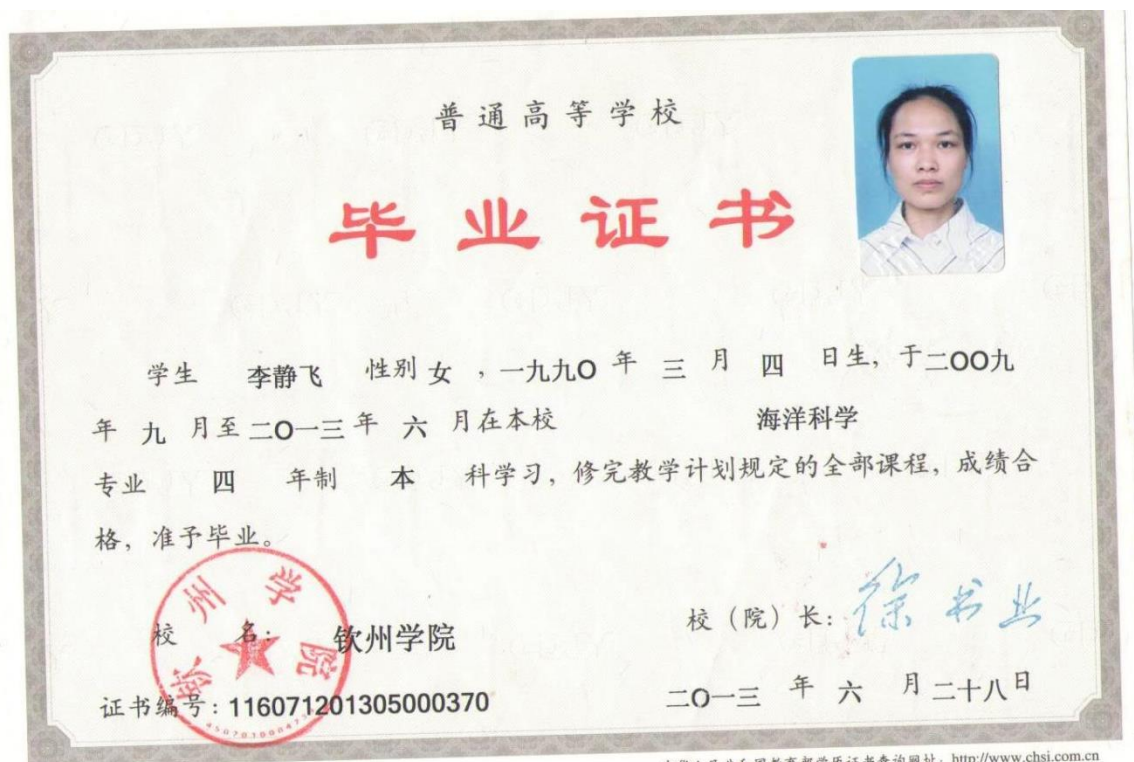 普通高等学校
毕业证书
学生 李静飞 性别 女 ，一九九O 年 三 月 四 日生，于二OO九
年 九 月至 二O一三 年 六 月在本校 海洋科学
专业 四 年制 本 科学习，修完教学计划规定的全部课程，成绩合
格，准予毕业。
钦州学院
校 名： 钦州学院
校（院）长：徐书业
证书编号：116071201305000370
二O一三 年 六 月 二十八日
学历证书查询网址：http://www.chsi.com.cn